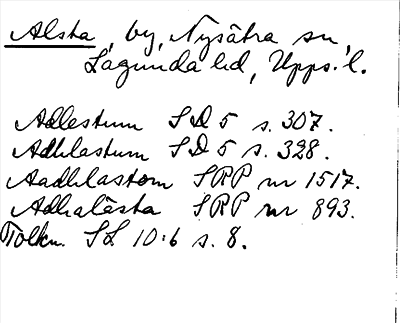 Alsta, by, Nysätra sn,
Lagunda hd, Upps. l.
Adlestum SD 5 s. 307.
Adhlastum SD 5 s. 328.
Aadhlastom SRP nr 1517.
Adhalästa SRP nr 893.
Tolkn. SL 10:6 s. 8.